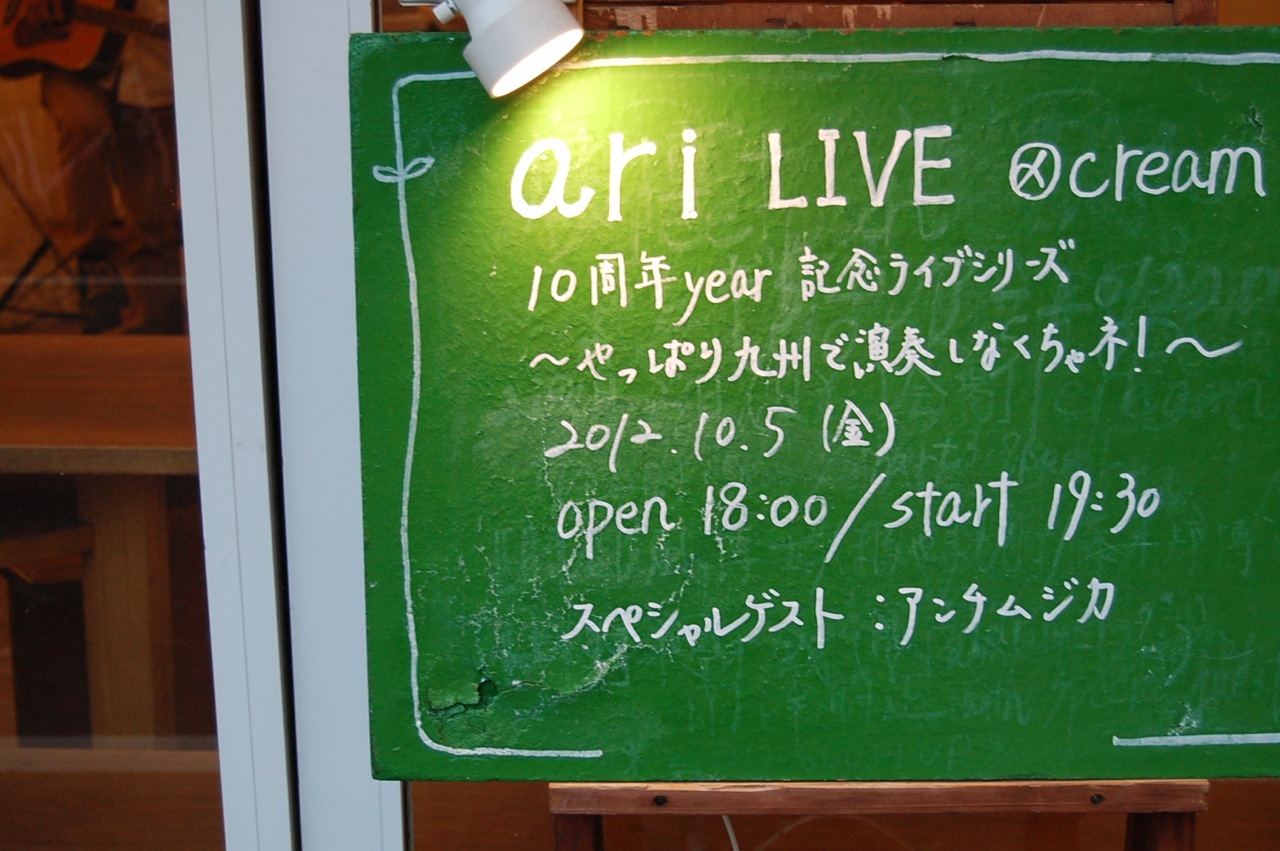 ari LIVE @cream
10周年year 記念ライブシリーズ
〜やっぱり九州で演奏しなくちゃネ!〜
2012.10.5 (金)
open 18:00/start 19:30
スペシャルゲスト:アンチムジカ